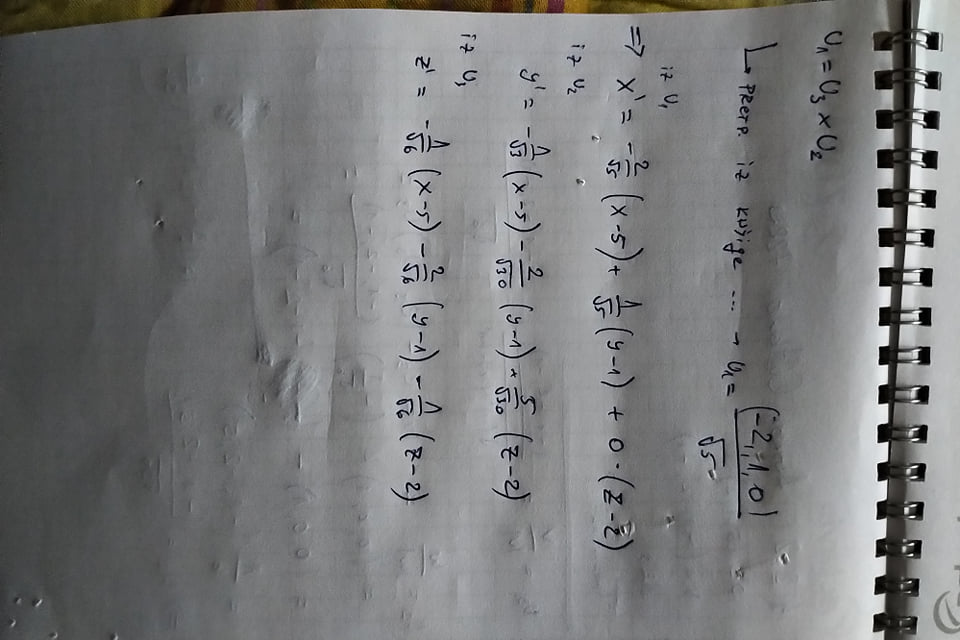 U₁ = U₃ × U₂
↳ PRETP. iz KNJIGE ... → U₁ = (-2, -1, 0) / √5
iz U₁
⇒ x' = -2/√5 (x-5) + 1/√5 (y-1) + 0 · (z-2)
iz U₂
y' = -1/√3 (x-5) - 2/√30 (y-1) + 5/√30 (z-2)
iz U₃
z' = -1/√6 (x-5) - 2/√6 (y-1) - 1/√6 (z-2)